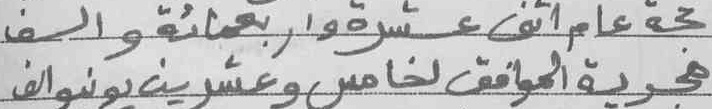 حجة عام اثنى عشرة وأربعمائة والف
هجرية الموافق لخامس وعشرين يونيو الف